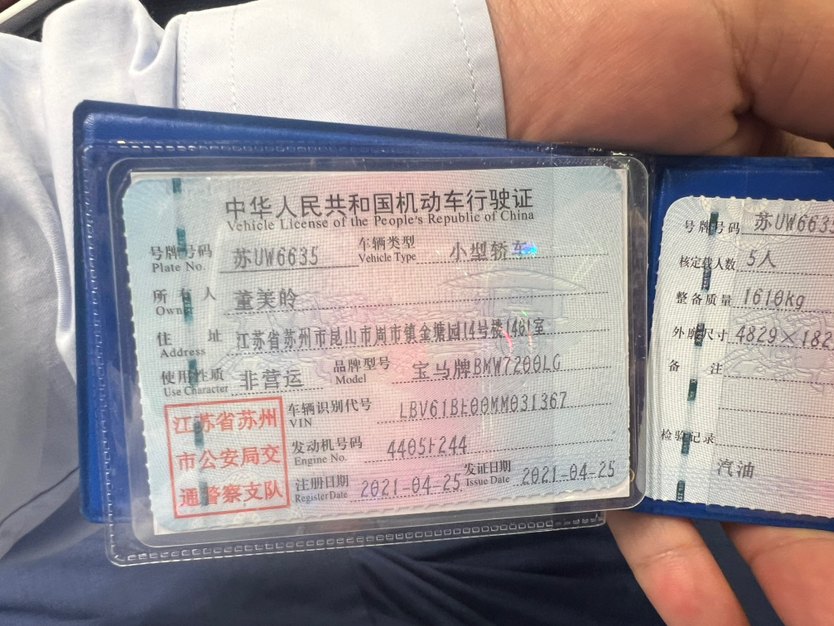 中华人民共和国机动车行驶证
Vehicle License of the People's Republic of China
号牌号码 苏UW6635 车辆类型 小型轿车
Plate No. Vehicle Type
所有人 董美皊
Owner
住址 江苏省苏州市昆山市周市镇金塘园14号楼1461室
Address
使用性质 非营运 品牌型号 宝马牌BMW7200LG
Use Character Model
江苏省苏州
市公安局交
通警察支队
车辆识别代号 LBV61BE00MM031367
VIN
发动机号码 4405F244
Engine No.
注册日期 2021-04-25 发证日期 2021-04-25
Register Date Issue Date
号牌号码 苏UW663
核定载人数 5人
整备质量 1610kg
外廓尺寸 4829×182
备注
检验记录
汽油